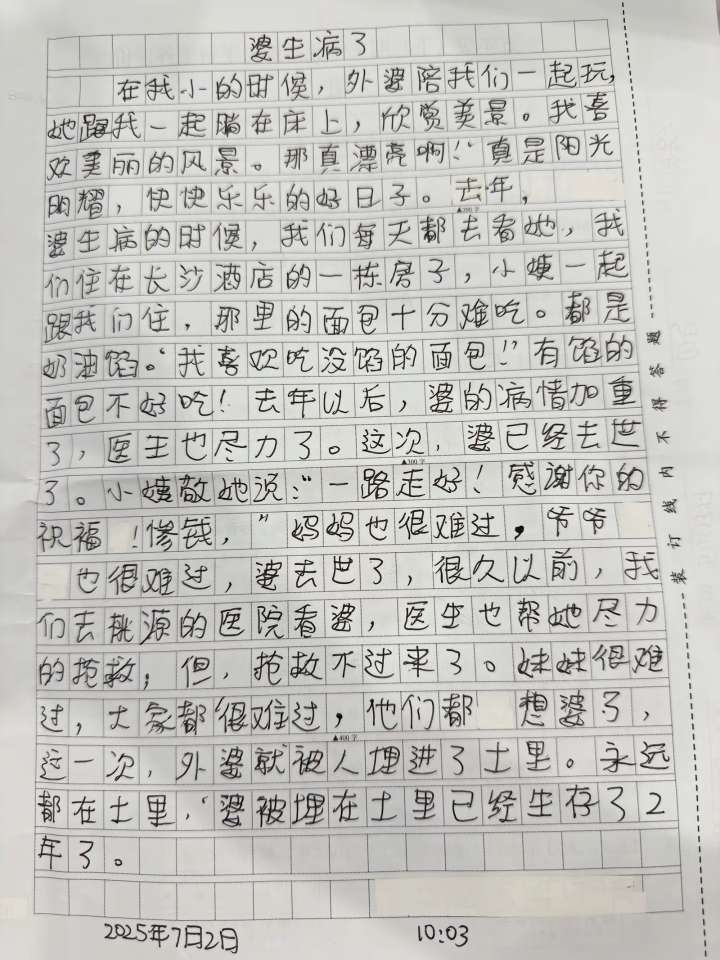 婆生病了
在我小的时候，外婆陪我们一起玩，
她跟我一起躺在床上，欣赏美景。我喜
欢美丽的风景。那真漂亮啊！”真是阳光
明耀，快快乐乐的好日子。去年，
▲200字
婆生病的时候，我们每天都去看她，我
们住在长沙酒店的一栋房子，小姨一起
跟我们住，那里的面包十分难吃。都是
奶油馅。“我喜欢吃没馅的面包！”有馅的
面包不好吃！去年以后，婆的病情加重
了，医生也尽力了。这次，婆已经去世
▲300字
了。小姨敵她说：“一路走好！感谢你的
祝福！惨钱，”妈妈也很难过，爷爷
也很难过，婆去世了，很久以前，我
们去桃源的医院看婆，医生也帮她尽力
的抢救，但，抢救不过来了。妹妹很难
过，大家都很难过，他们都 想婆了，
▲400字
这一次，外婆就被人埋进了土里。永远
都在土里，婆被埋在土里已经生存了2
年了。
2025年7月2日 10:03
装订线内不得答题